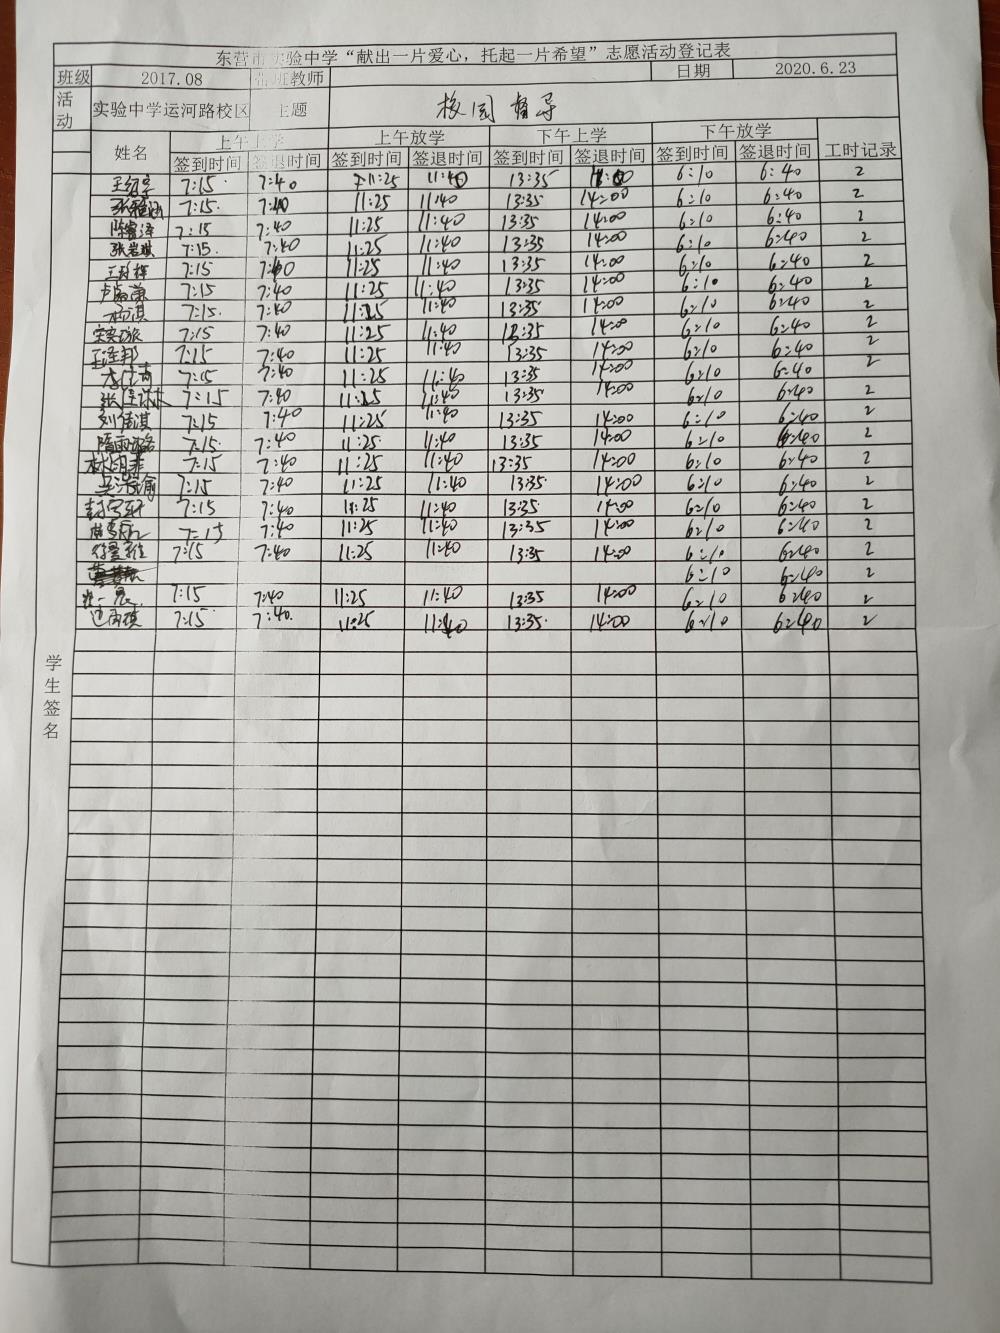 东营市实验中学“献出一片爱心，托起一片希望”志愿活动登记表
班级 2017.08 带班教师 日期 2020.6.23
活动 实验中学运河路校区 主题 校园督导
姓名 上午上学 上午放学 下午上学 下午放学 工时记录
签到时间 签退时间 签到时间 签退时间 签到时间 签退时间 签到时间 签退时间
7:15 7:40 11:25 11:40 13:35 14:00 6:10 6:40 2
7:15 7:40 11:25 11:40 13:35 14:00 6:10 6:40 2
陈睿泽 7:15 7:40 11:25 11:40 13:35 14:00 6:10 6:40 2
张岩琪 7:15 7:40 11:25 11:40 13:35 14:00 6:10 6:40 2
7:15 7:40 11:25 11:40 13:35 14:00 6:10 6:40 2
7:15 7:40 11:25 11:40 13:35 14:00 6:10 6:40 2
7:15 7:40 11:25 11:40 13:35 14:00 6:10 6:40 2
7:15 7:40 11:25 11:40 13:35 14:00 6:10 6:40 2
王泽邦 7:15 7:40 11:25 11:40 13:35 14:00 6:10 6:40 2
7:15 7:40 11:25 11:40 13:35 14:00 6:10 6:40 2
7:15 7:40 11:25 11:40 13:35 14:00 6:10 6:40 2
刘倩淇 7:15 7:40 11:25 11:40 13:35 14:00 6:10 6:40 2
7:15 7:40 11:25 11:40 13:35 14:00 6:10 6:40 2
7:15 7:40 11:25 11:40 13:35 14:00 6:10 6:40 2
7:15 7:40 11:25 11:40 13:35 14:00 6:10 6:40 2
7:15 7:40 11:25 11:40 13:35 14:00 6:10 6:40 2
7:15 7:40 11:25 11:40 13:35 14:00 6:10 6:40 2
7:15 7:40 11:25 11:40 13:35 14:00 6:10 6:40 2
6:10 6:40 2
7:15 7:40 11:25 11:40 13:35 14:00 6:10 6:40 2
7:15 7:40 11:25 11:40 13:35 14:00 6:10 6:40 2
学生签名